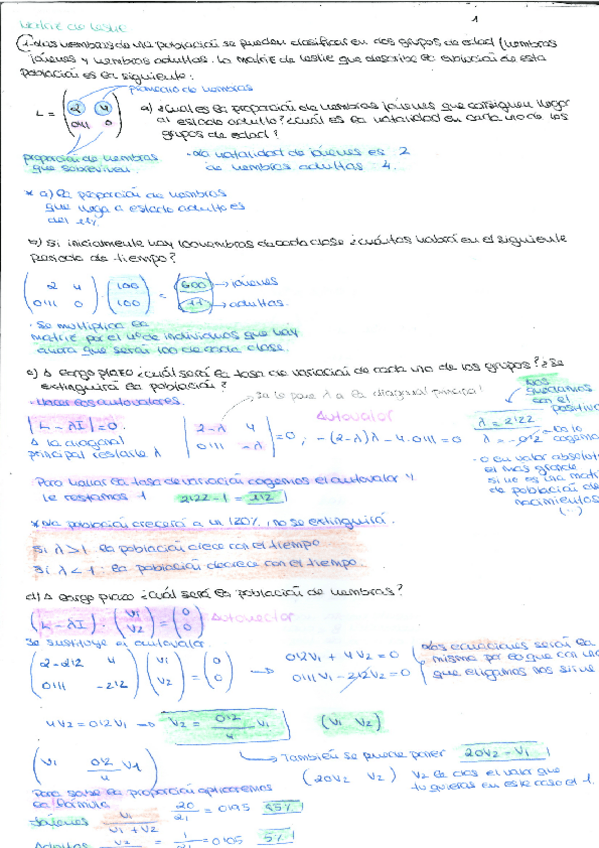 Matriz de Leslie
1
1- Las hembras de una población se pueden clasificar en dos grupos de edad (hembras
jóvenes y hembras adultas. La matriz de Leslie que describe la evolución de esta
población es la siguiente:
promedio de hembras
L = ( 2 4
0'11 0 )
a) ¿Cuál es la proporción de hembras jóvenes que consiguen llegar
al estado adulto? ¿Cuál es la natalidad en cada uno de los
grupos de edad?
proporción de hembras
que sobreviven.
- La natalidad de jóvenes es 2
de hembras adultas : 4.
* a) La proporción de hembras
que llega a estado adulto es
del 11%.
b) Si inicialmente hay 100 hembras de cada clase ¿cuántas habrá en el siguiente
periodo de tiempo?
( 2 4
0'11 0 ) · ( 100
100 ) = ( 600
11 )
→ jóvenes
→ adultas.
- Se multiplica la
matriz por el nº de individuos que hay
ahora que serán 100 de cada clase.
c) A largo plazo ¿cuál será la tasa de variación de cada uno de los grupos? ¿Se
extinguirá la población?
- Hallar los autovalores.
Se le pone λ a la diagonal principal
|L - λI| = 0.
A la diagonal
principal restarle λ
| 2-λ 4
0'11 -λ | = 0 ; -(2-λ)λ - 4·0'11 = 0
Autovalor
Nos
quedamos
con el
positivo
λ = 2'22
λ = -0'2
no lo
cogemos
- o en valor absoluto
el más grande
si no es una
de población de
nacimientos
(-)
Para hallar la tasa de variación cogemos el autovalor y
le restamos 1
2'22 - 1 = 1'2
* La población crecerá a un 120%, no se extinguirá.
Si λ > 1 : la población crece con el tiempo
Si λ < 1 : la población decrece con el tiempo.
d) A largo plazo ¿cuál será la población de hembras?
(L - λI) · ( V1
V2 ) = ( 0
0 )
Autovector
Se sustituye el autovalor.
( 2-2'2 4
0'11 -2'2 ) ( V1
V2 ) = ( 0
0 )
→ 0'2V1 + 4V2 = 0
0'11V1 - 2'2V2 = 0
Las ecuaciones serán la
misma por lo que con una
que elijamos nos sirve
4V2 = 0'2V1 → V2 = 0'2/4 V1
(V1 V2)
( V1 0'2/4 V1 )
→ También se puede poner 20V2 = V1
(20V2 V2) V2 le das el valor que
tu quieras en este caso el 1.
Para saber la proporción aplicaremos
la fórmula
Jóvenes V1/(V1 + V2) 20/21 = 0'95 95%
Adultas V2 1/21 = 0'05 5%